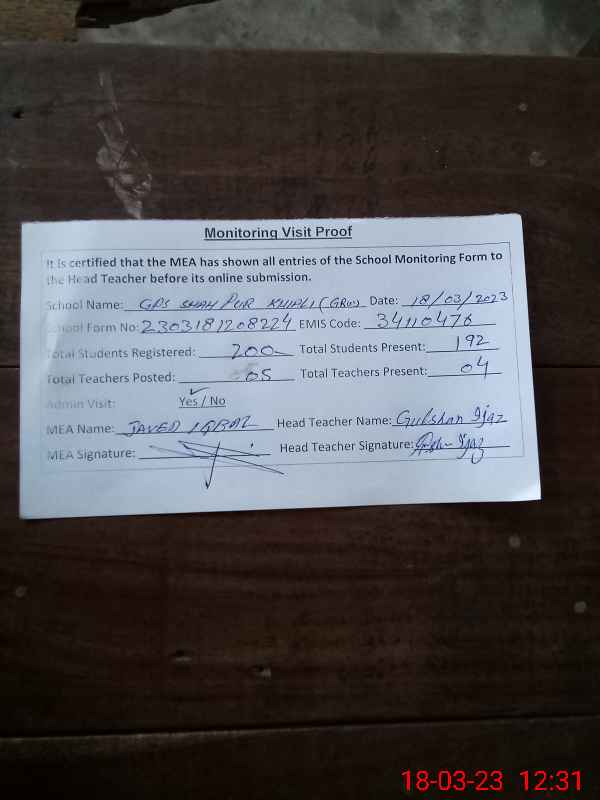 Monitoring Visit Proof
It is certified that the MEA has shown all entries of the School Monitoring Form to
the Head Teacher before its online submission.
School Name: GPS SHAH PUR KHIALI (GRW) Date: 18/03/2023
School Form No: 2303181208224 EMIS Code: 34110476
Total Students Registered: 200 Total Students Present: 192
Total Teachers Posted: 05 Total Teachers Present: 04
Admin Visit: Yes / No
MEA Name: JAVED IQBAL Head Teacher Name: Gulshan Ijaz
MEA Signature: Head Teacher Signature: Gulshan Ijaz
18-03-23 12:31